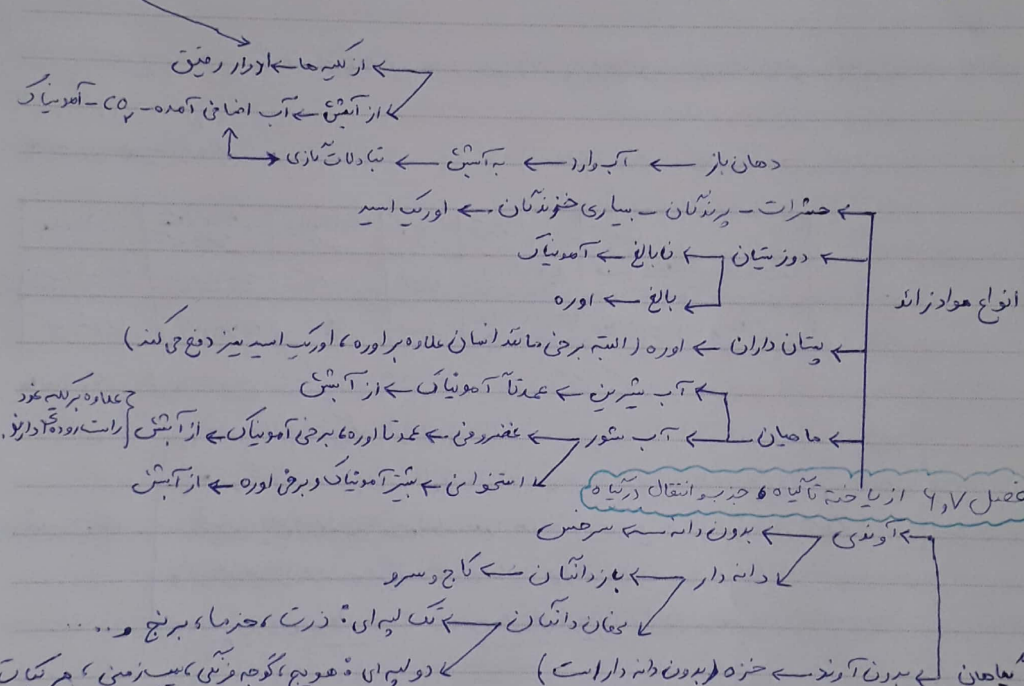 از کلیه ها ← ادرار رقیق
از آبشش ← آب اضافی آمده - CO₂ - آمونیاک
دهان باز ← آب وارد ← به آبشش ← تبادلات گازی
حشرات - پرندگان - بسیاری خزندگان ← اوریک اسید
دوزیستان ← نابالغ ← آمونیاک
بالغ ← اوره
انواع مواد زائد
پستان داران ← اوره (البته برخی مانند انسان علاوه بر اوره، اوریک اسید نیز دفع می کنند)
آب شیرین ← عمدتاً آمونیاک ← از آبشش
ماهیان ← آب شور ← غضروفی ← عمدتا اوره، برخی آمونیاک ← از آبشش { علاوه بر کلیه غدد راست روده ای دارند.
استخوانی ← بیشتر آمونیاک و برخی اوره ← از آبشش
فصل ۶و۷ از یاخته تا گیاه و جذب و انتقال در گیاه
آوندی ← بدون دانه ← سرخس
دانه دار ← بازدانگان ← کاج و سرو
نهان دانگان ← تک لپه ای: ذرت، خرما، برنج و...
دو لپه ای: هویج، گوجه فرنگی، سیب زمینی،
گیاهان ← بدون آوند ← خزه (بدون دانه دار است)